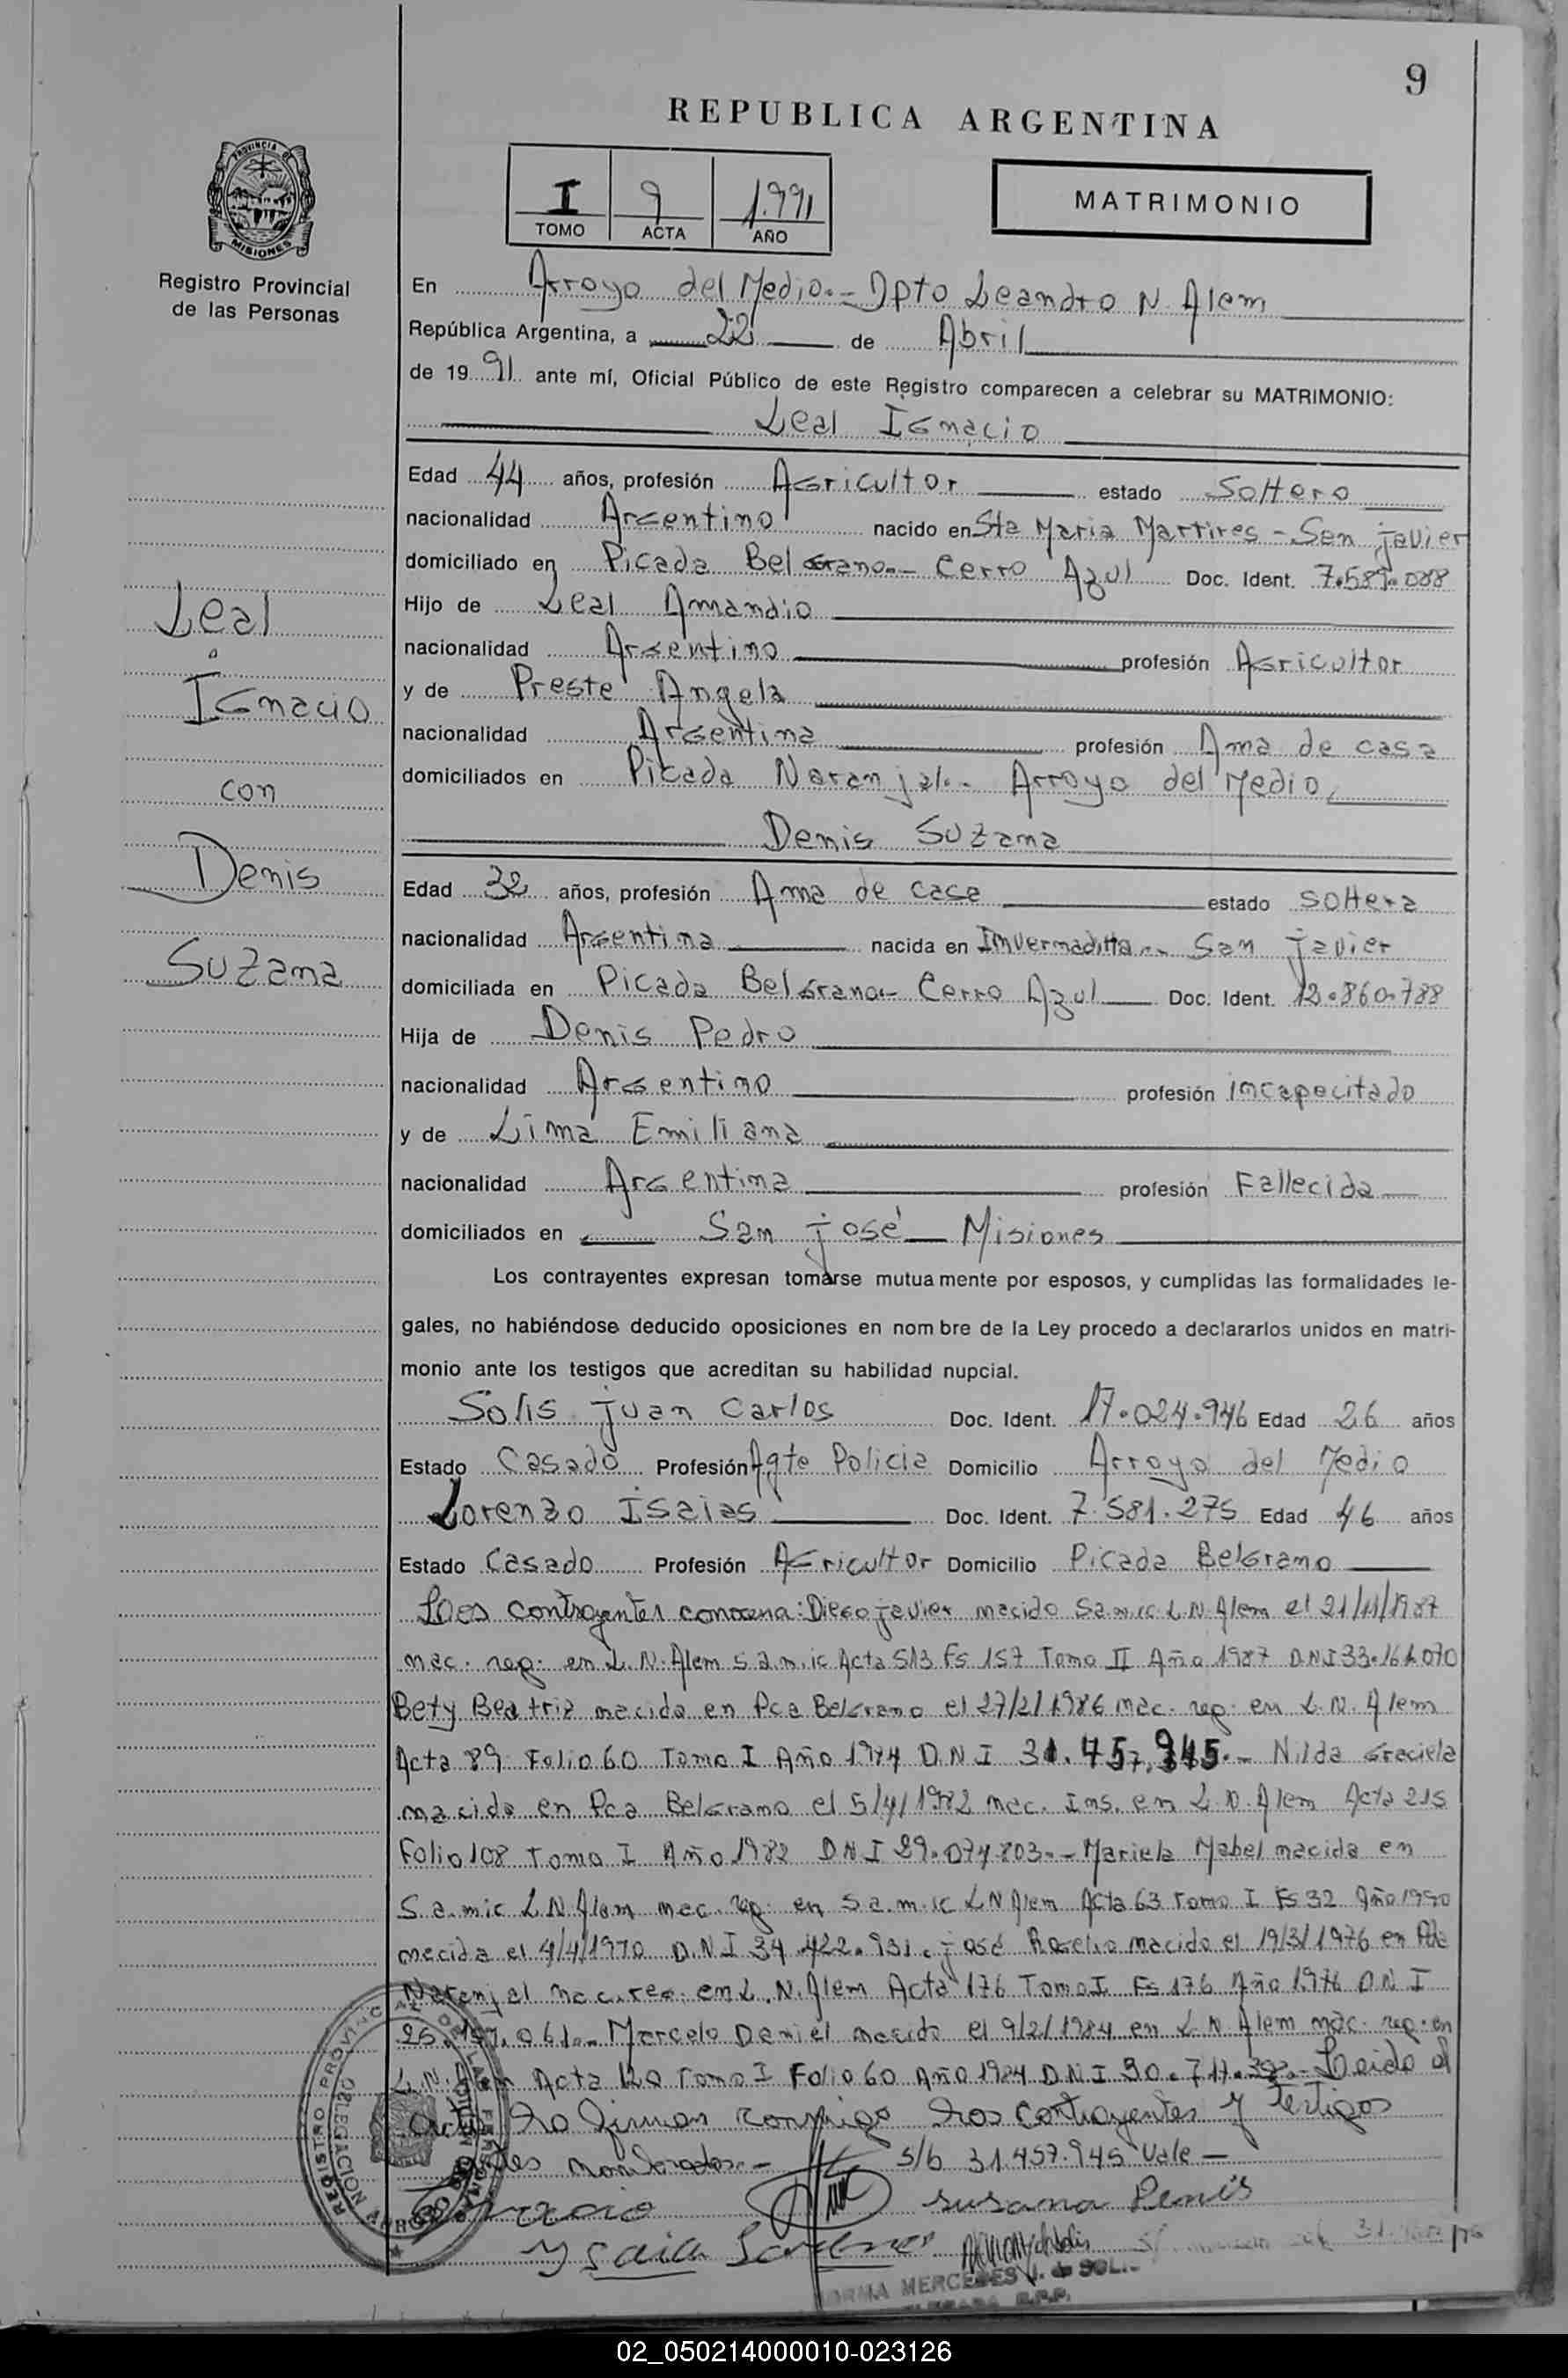 9
REPUBLICA ARGENTINA
I 9 1.991
TOMO ACTA AÑO
MATRIMONIO
PROVINCIA DE
MISIONES
Registro Provincial
de las Personas
En Arroyo del Medio.- Dpto Leandro N Alem
República Argentina, a 22 de Abril
de 1991 ante mí, Oficial Público de este Registro comparecen a celebrar su MATRIMONIO:
Leal Ignacio
Edad 44 años, profesión Agricultor estado Soltero
nacionalidad Argentino nacido en Sta Maria Martires - San javier
domiciliado en Picada Belgrano.- Cerro Azul Doc. Ident. 7.589.088
Hijo de Leal Amandio
nacionalidad Argentino profesión Agricultor
y de Preste Angela
nacionalidad Argentina profesión Ama de casa
domiciliados en Picada Naranjal.- Arroyo del Medio
Leal
Ignacio
con
Denis
Suzana
Denis Suzana
Edad 32 años, profesión Ama de casa estado soltera
nacionalidad Argentina nacida en San javier
domiciliada en Picada Belgrano- Cerro Azul Doc. Ident. 12.860.788
Hija de Denis Pedro
nacionalidad Argentino profesión incapacitado
y de Lima Emiliana
nacionalidad Argentina profesión Fallecida
domiciliados en San josé Misiones
Los contrayentes expresan tomarse mutuamente por esposos, y cumplidas las formalidades le-
gales, no habiéndose deducido oposiciones en nombre de la Ley procedo a declararlos unidos en matri-
monio ante los testigos que acreditan su habilidad nupcial.
Solis juan Carlos Doc. Ident. 17.024.946 Edad 26 años
Estado Casado Profesión Agte Policia Domicilio Arroyo del Medio
Lorenzo isaias Doc. Ident. 7.581.275 Edad 46 años
Estado Casado Profesión Agricultor Domicilio Picada Belgrano
contrayentes Diego javier nacido L N Alem el 21/11/1987
nac. rep. en L. N. Alem Acta 513 Fs 157 Tomo II Año 1987 D.N.I
Bety Beatriz nacida en Pca Belgrano el 27/2/1986 nac. rep. en L. N. Alem
Acta 89 Folio 60 Tomo I Año D N I 31.457.945.- Nilda Graciela
nacida en Pca Belgrano el 5/4/1982 nac. Ins. en L. N. Alem Acta 215
Folio 108 Tomo I Año 1982 D N I 29.074.803.- Mariela Mabel nacida en
L N Alem nac. rep. en L N Alem Acta 63 Tomo I Fs 32 Año 1990
nacida el D.N.I 34.422.931. josé Rogelio nacido el 19/3/1976 en
Naranjal en L. N. Alem Acta 176 Tomo I Fs 176 Año 1976 D N I
Marcelo Daniel nacido el 9/2/1984 en L N Alem nac. rep. en
L. N. Alem Acta 120 Tomo I Folio 60 Año 1984 D N I Leido el
acta la firman conmigo los contrayentes y testigos
antes nombrados.- s/b 31.457.945 Vale -
susana Denis
Ysaia
NORMA MERCEDES
REGISTRO PROVINCIAL DE LAS PERSONAS
DELEGACION
02_050214000010-023126